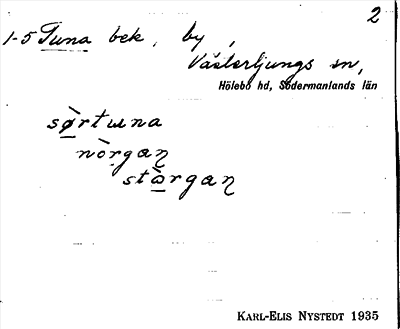 2
1-5 Tuna bek, by,
Västerljungs sn,
Hölebo hd, Södermanlands län
sø̀rtɯna
nòrgaɳ
stɑ̀rgaɳ
KARL-ELIS NYSTEDT 1935